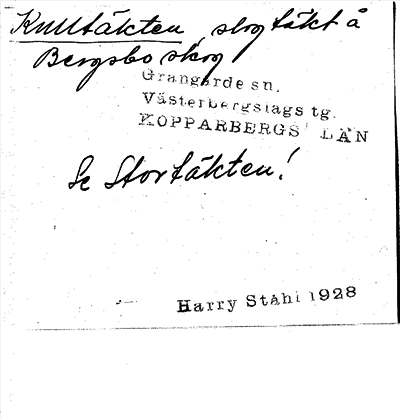 Knuttäkten, slogtäkt å
Bergsbo skog
Grangärde sn.
Västerbergslags tg.
KOPPARBERGS LÄN
Se Stortäkten!
Harry Ståhl 1928